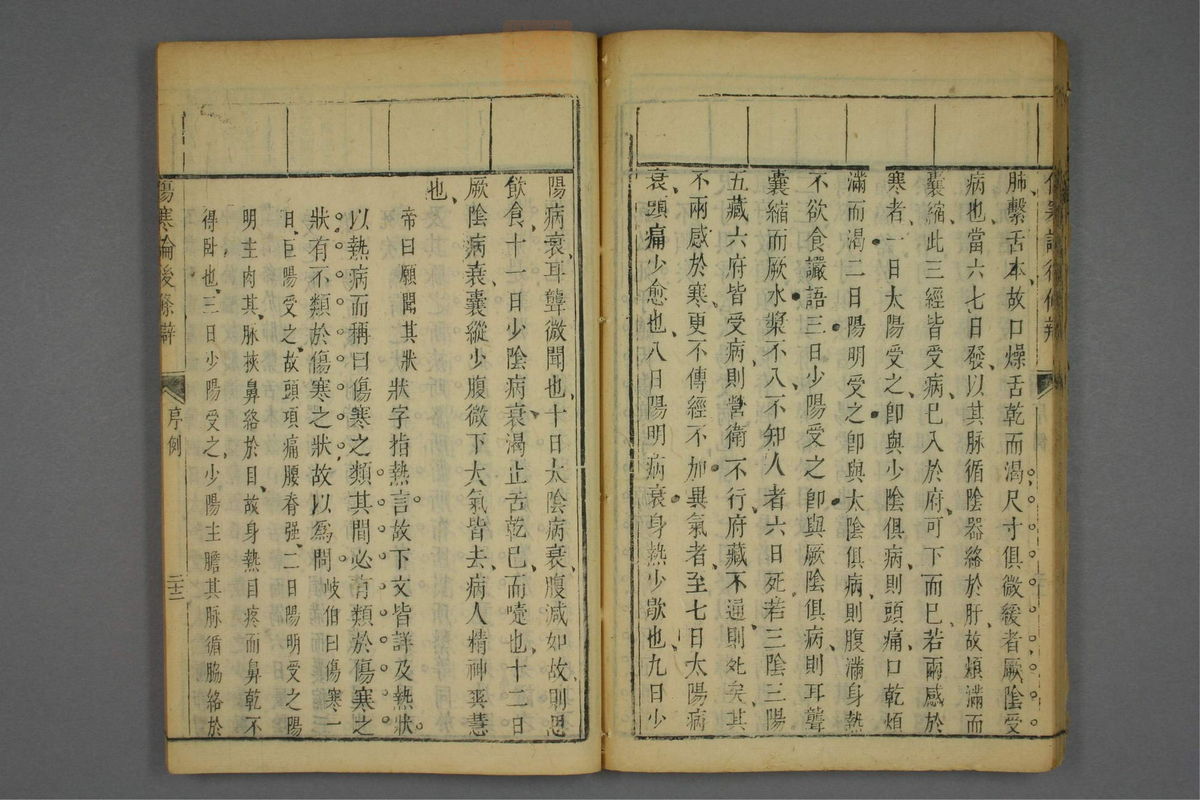 肺繫舌本故口燥舌乾而渴尺寸俱微緩者厥陰受
病也當六七日發以其脉循陰器絡於肝故煩滿而
囊縮此三經皆受病已入於府可下而已若兩感於
寒者一日太陽受之卽與少陰俱病則頭痛口乾煩
滿而渴二日陽明受之卽與太陰俱病則腹滿身熱
不欲食讝語三日少陽受之卽與厥陰俱病則耳聾
囊縮而厥水漿不入不知人者六日死若三陰三陽
五藏六府皆受病則營衛不行府藏不通則死矣其
不兩感於寒更不傳經不加異氣者至七日太陽病
衰頭痛少愈也八日陽明病衰身熱少歇也九日少
陽病衰耳聾微聞也十日太陰病衰腹減如故則思
飲食十一日少陰病衰渴止舌乾已而嚏也十二日
厥陰病衰囊縱少腹微下大氣皆去病人精神爽慧
也
帝曰願聞其狀狀字指熱言故下文皆詳及熱狀
以熱病而稱曰傷寒之類其間必有類於傷寒之
狀有不類於傷寒之狀故以爲問岐伯曰傷寒一
日巨陽受之故頭項痛腰脊强二日陽明受之陽
明主肉其脉挾鼻絡於目故身熱目疼而鼻乾不
得臥也三日少陽受之少陽主膽其脉循脇絡於
傷寒論後條辯 序例 二十三